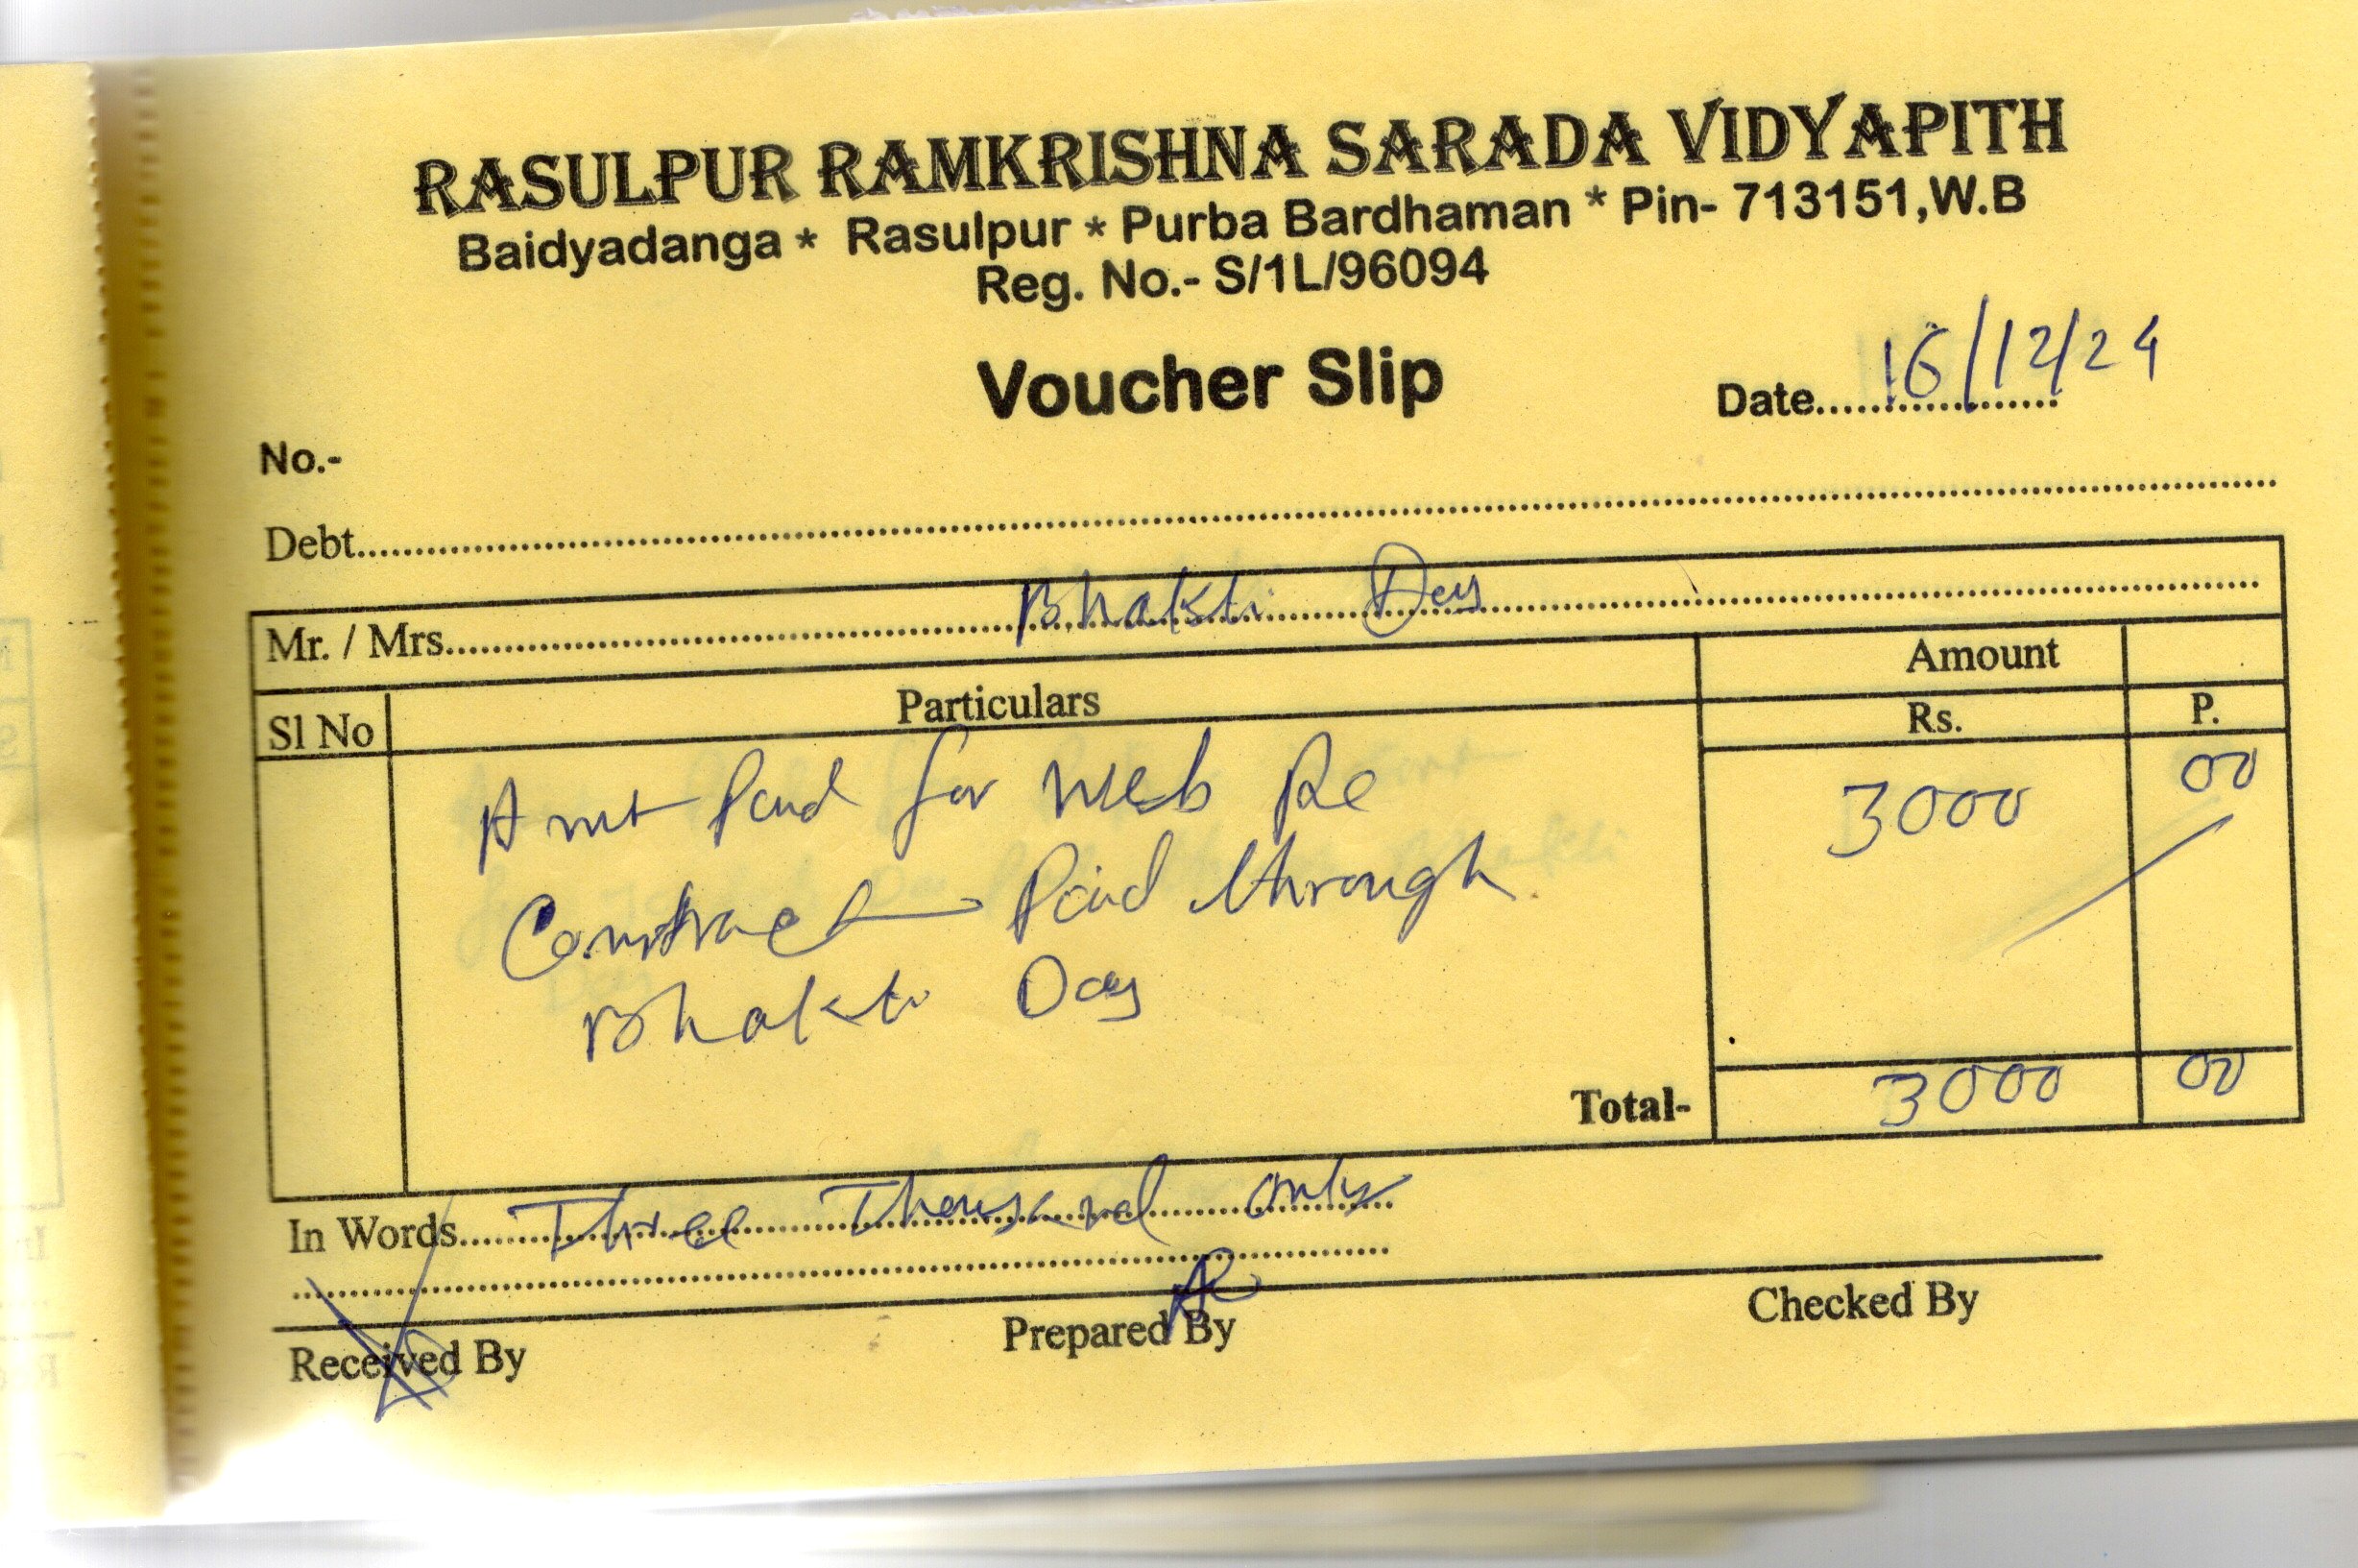 RASULPUR RAMKRISHNA SARADA VIDYAPITH
Baidyadanga * Rasulpur * Purba Bardhaman * Pin- 713151,W.B
Reg. No.- S/1L/96094
Voucher Slip
Date.................... 16/12/24
No.-
Debt
Mr. / Mrs. Bhakti Dey
Amount
Sl No Particulars Rs. P.
Amt Paid for Web Re 3000 00
Construct Paid through
Bhakti Dey
Total- 3000 00
In Words Three Thousand only
Received By Prepared By Checked By